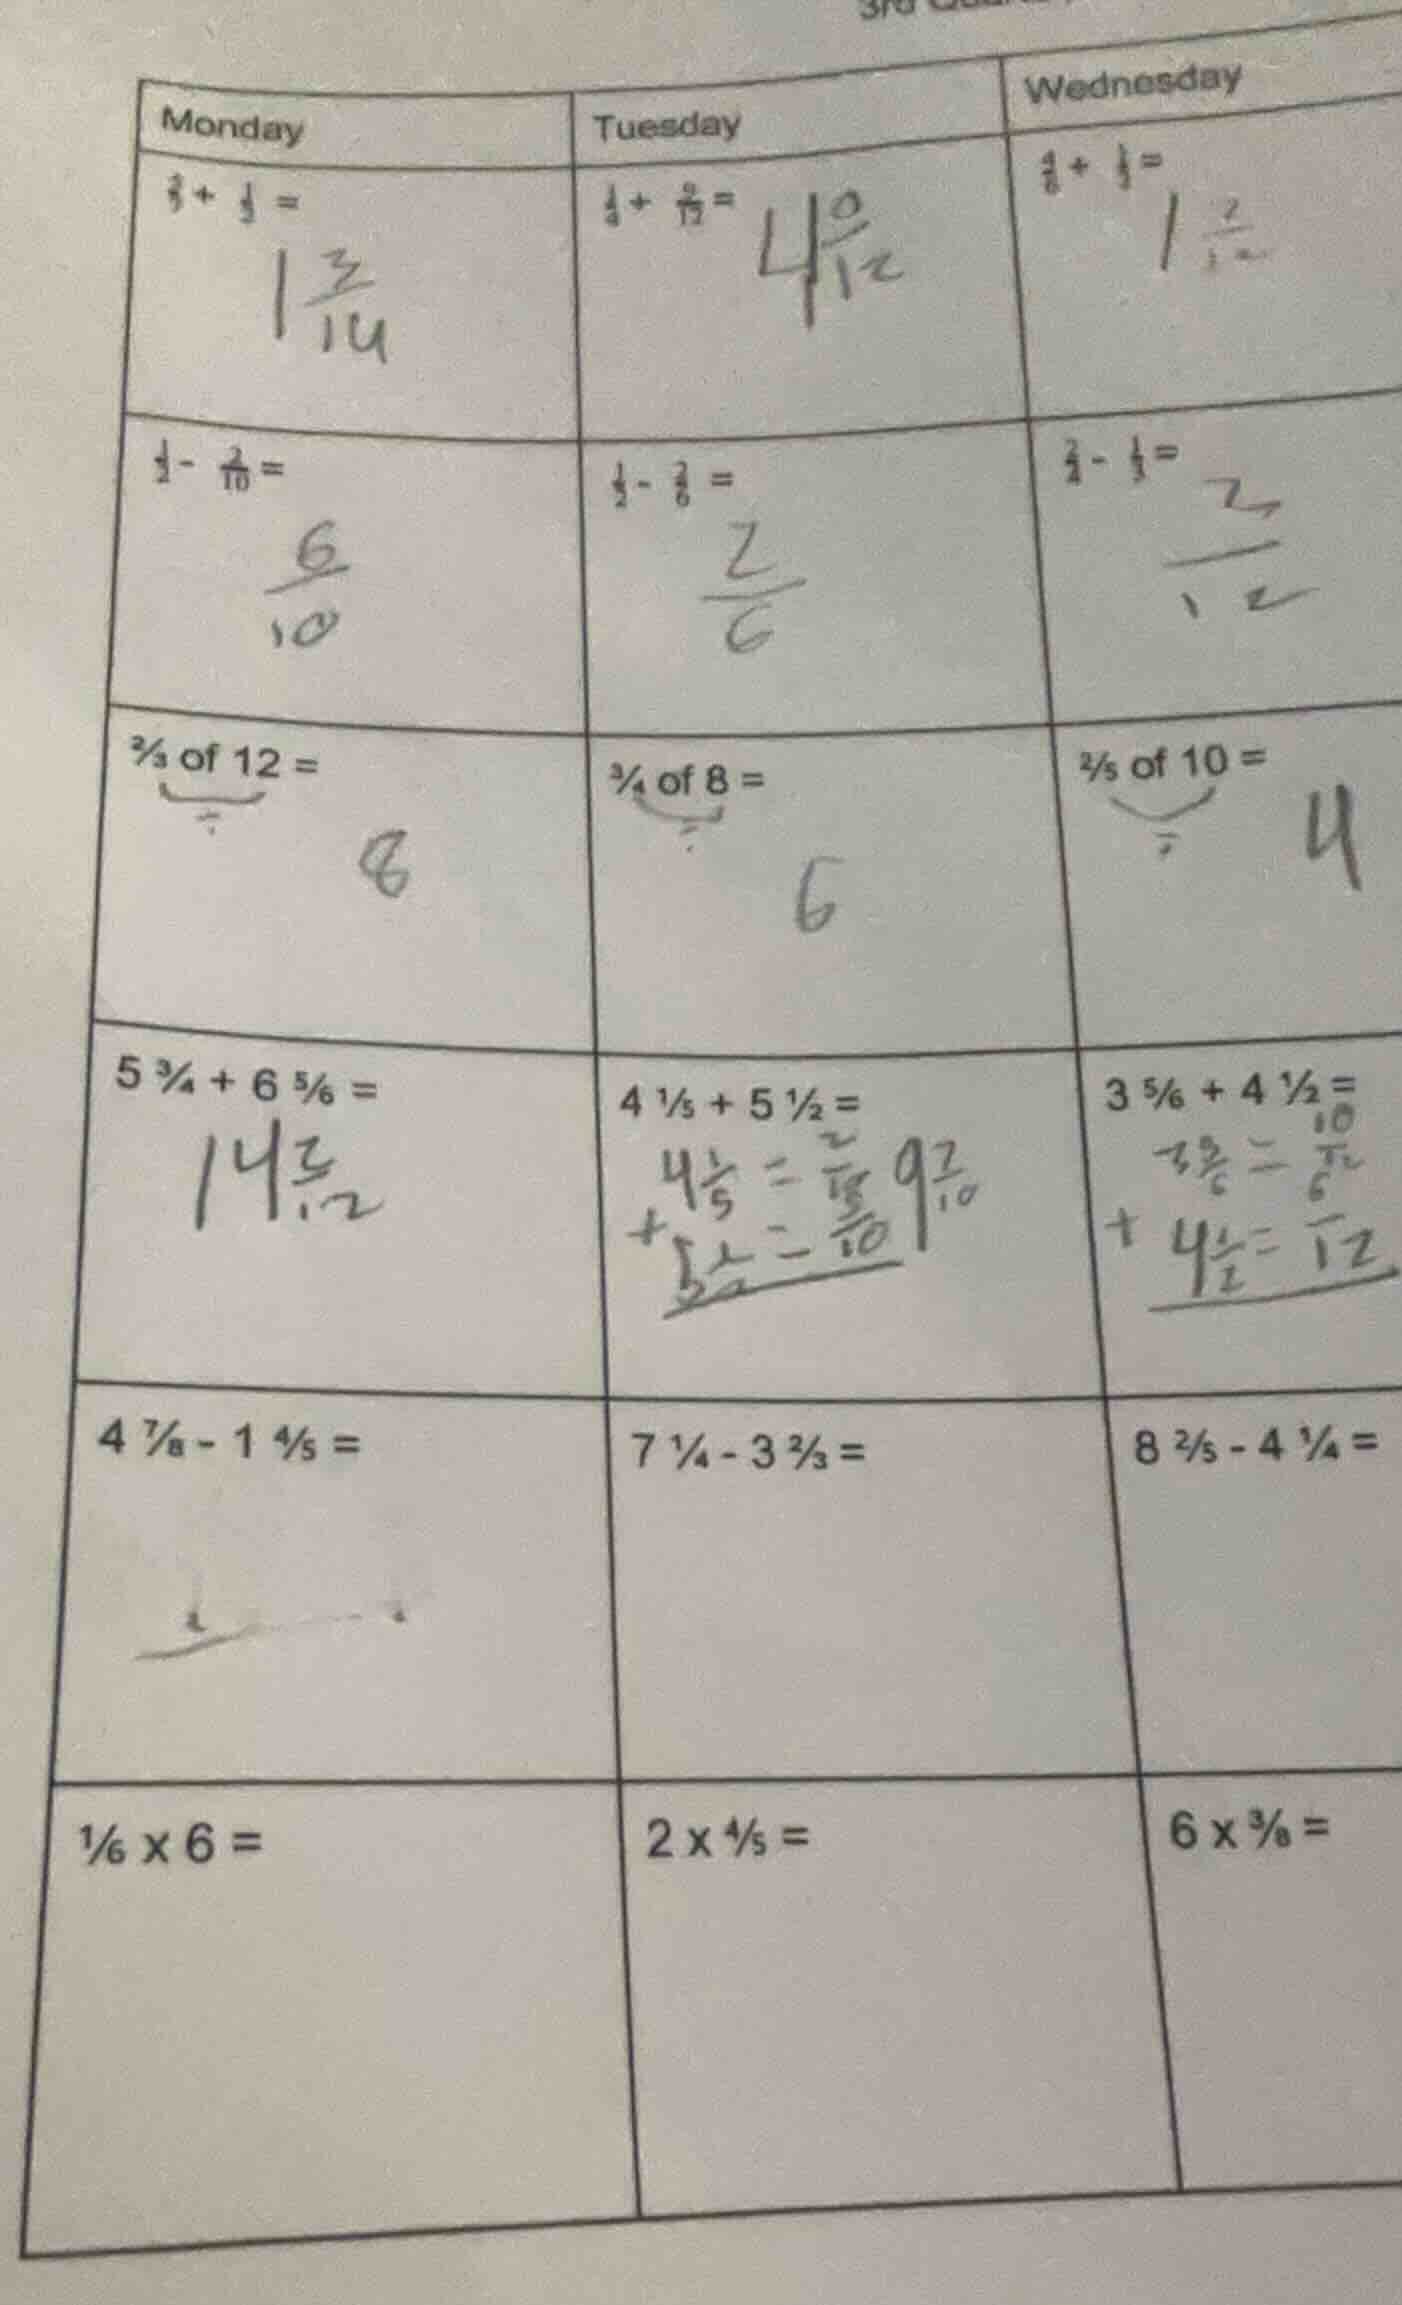 3rd
Monday
Tuesday
Wednesday
+ 1/2 =
1 3/14
1/4 + 9/12 =
4 0/12
4/6 + 1/2 =
1 2/12
1/2 - 2/10 =
6/10
1/2 - 2/6 =
2/6
2/4 - 1/3 =
2/12
⅔ of 12 =
÷
8
¾ of 8 =
÷
6
⅖ of 10 =
÷
4
5 ¾ + 6 ⅚ =
14 2/12
4 ⅕ + 5 ½ =
4 1/5 = 2/10
+ 5 1/2 = 5/10
9 7/10
3 ⅚ + 4 ½ =
3 5/6 = 10/12
+ 4 1/2 = 6/12
4 ⅞ - 1 ⅘ =
7 ¼ - 3 ⅔ =
8 ⅖ - 4 ¼ =
⅙ x 6 =
2 x ⅘ =
6 x ⅜ =